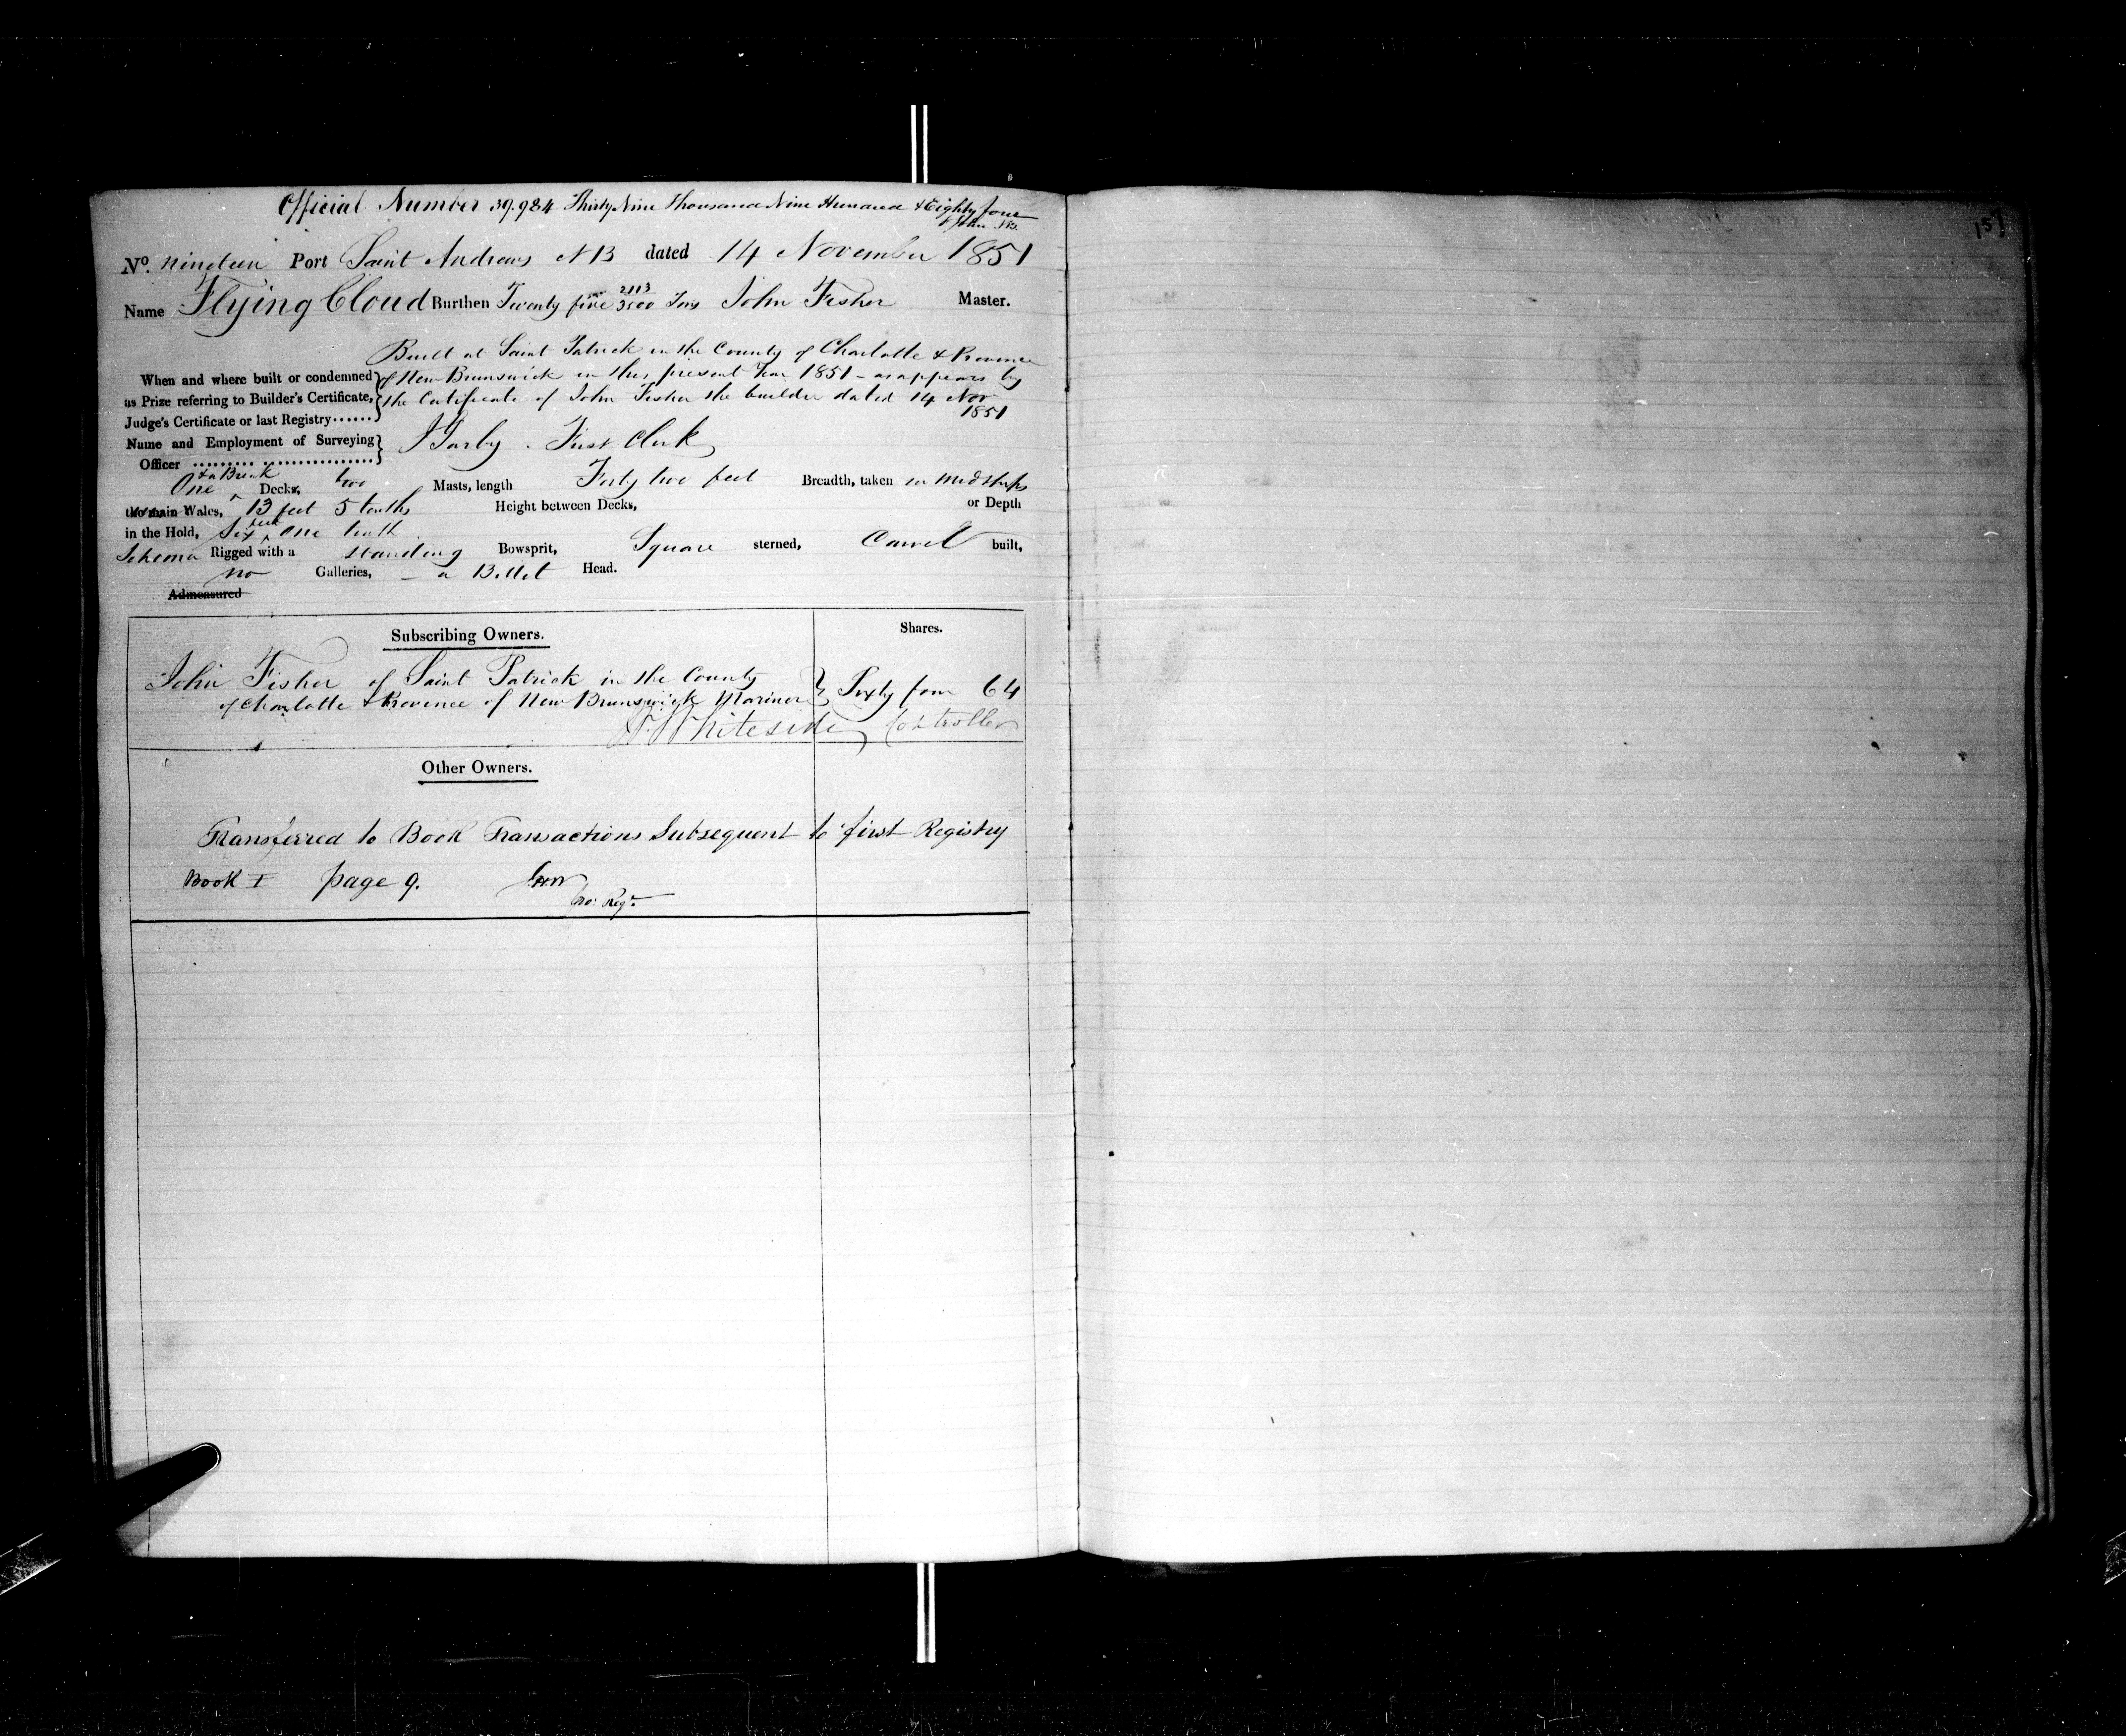 Official Number 39.984 Thirty Nine Thousand Nine Hundred & Eighty four
St John NB.
157
No. nineteen Port Saint Andrews N B dated 14 November 1851
Name Flying Cloud Burthen Twenty five 2113/3500 Tons John Fisher Master.
Built at Saint Patrick in the County of Charlotte & Province
When and where built or condemned of New Brunswick in this present Year 1851 - as appears by
as Prize referring to Builder's Certificate, the Certificate of John Fisher the builder dated 14 Nov
Judge's Certificate or last Registry...... 1851
Name and Employment of Surveying
Officer First Clerk
One & a Break Decks, two Masts, length Forty two feet Breadth, taken in midships
the main Wales, 13 feet 5 tenths Height between Decks, or Depth
in the Hold, Six feet one tenth
Schooner Rigged with a standing Bowsprit, Square sterned, Carvel built,
no Galleries, - a Billet Head.
Admeasured
Subscribing Owners. Shares.
John Fisher of Saint Patrick in the County
of Charlotte & Province of New Brunswick Mariner Sixty four 64
Whiteside Controller
Other Owners.
Transferred to Book Transactions Subsequent to first Registry
Book I page 9.
Regr.